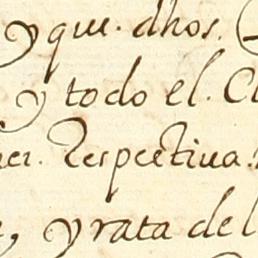 y que. dhos.
y todo el. C
er. Respectiua.
, y rata del